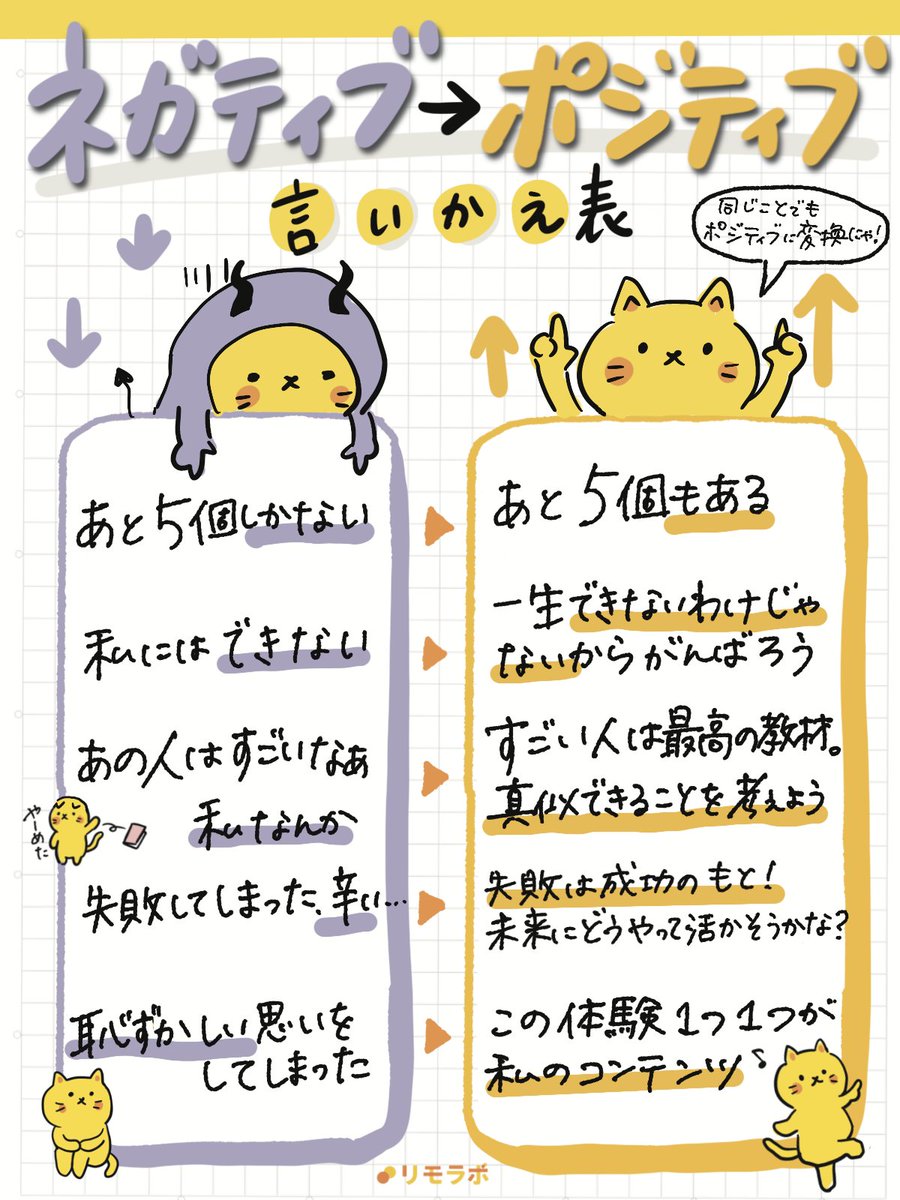 ネガティブ→ポジティブ
言いかえ表
同じことでも
ポジティブに変換にゃ!
あと5個しかない
あと5個もある
私にはできない
一生できないわけじゃ
ないからがんばろう
あの人はすごいなぁ
私なんか
すごい人は最高の教材。
真似できることを考えよう
やーめた
失敗してしまった、辛い…
失敗は成功のもと!
未来にどうやって活かそうかな?
恥ずかしい思いを
してしまった
この体験1つ1つが
私のコンテンツ♪
リモラボ